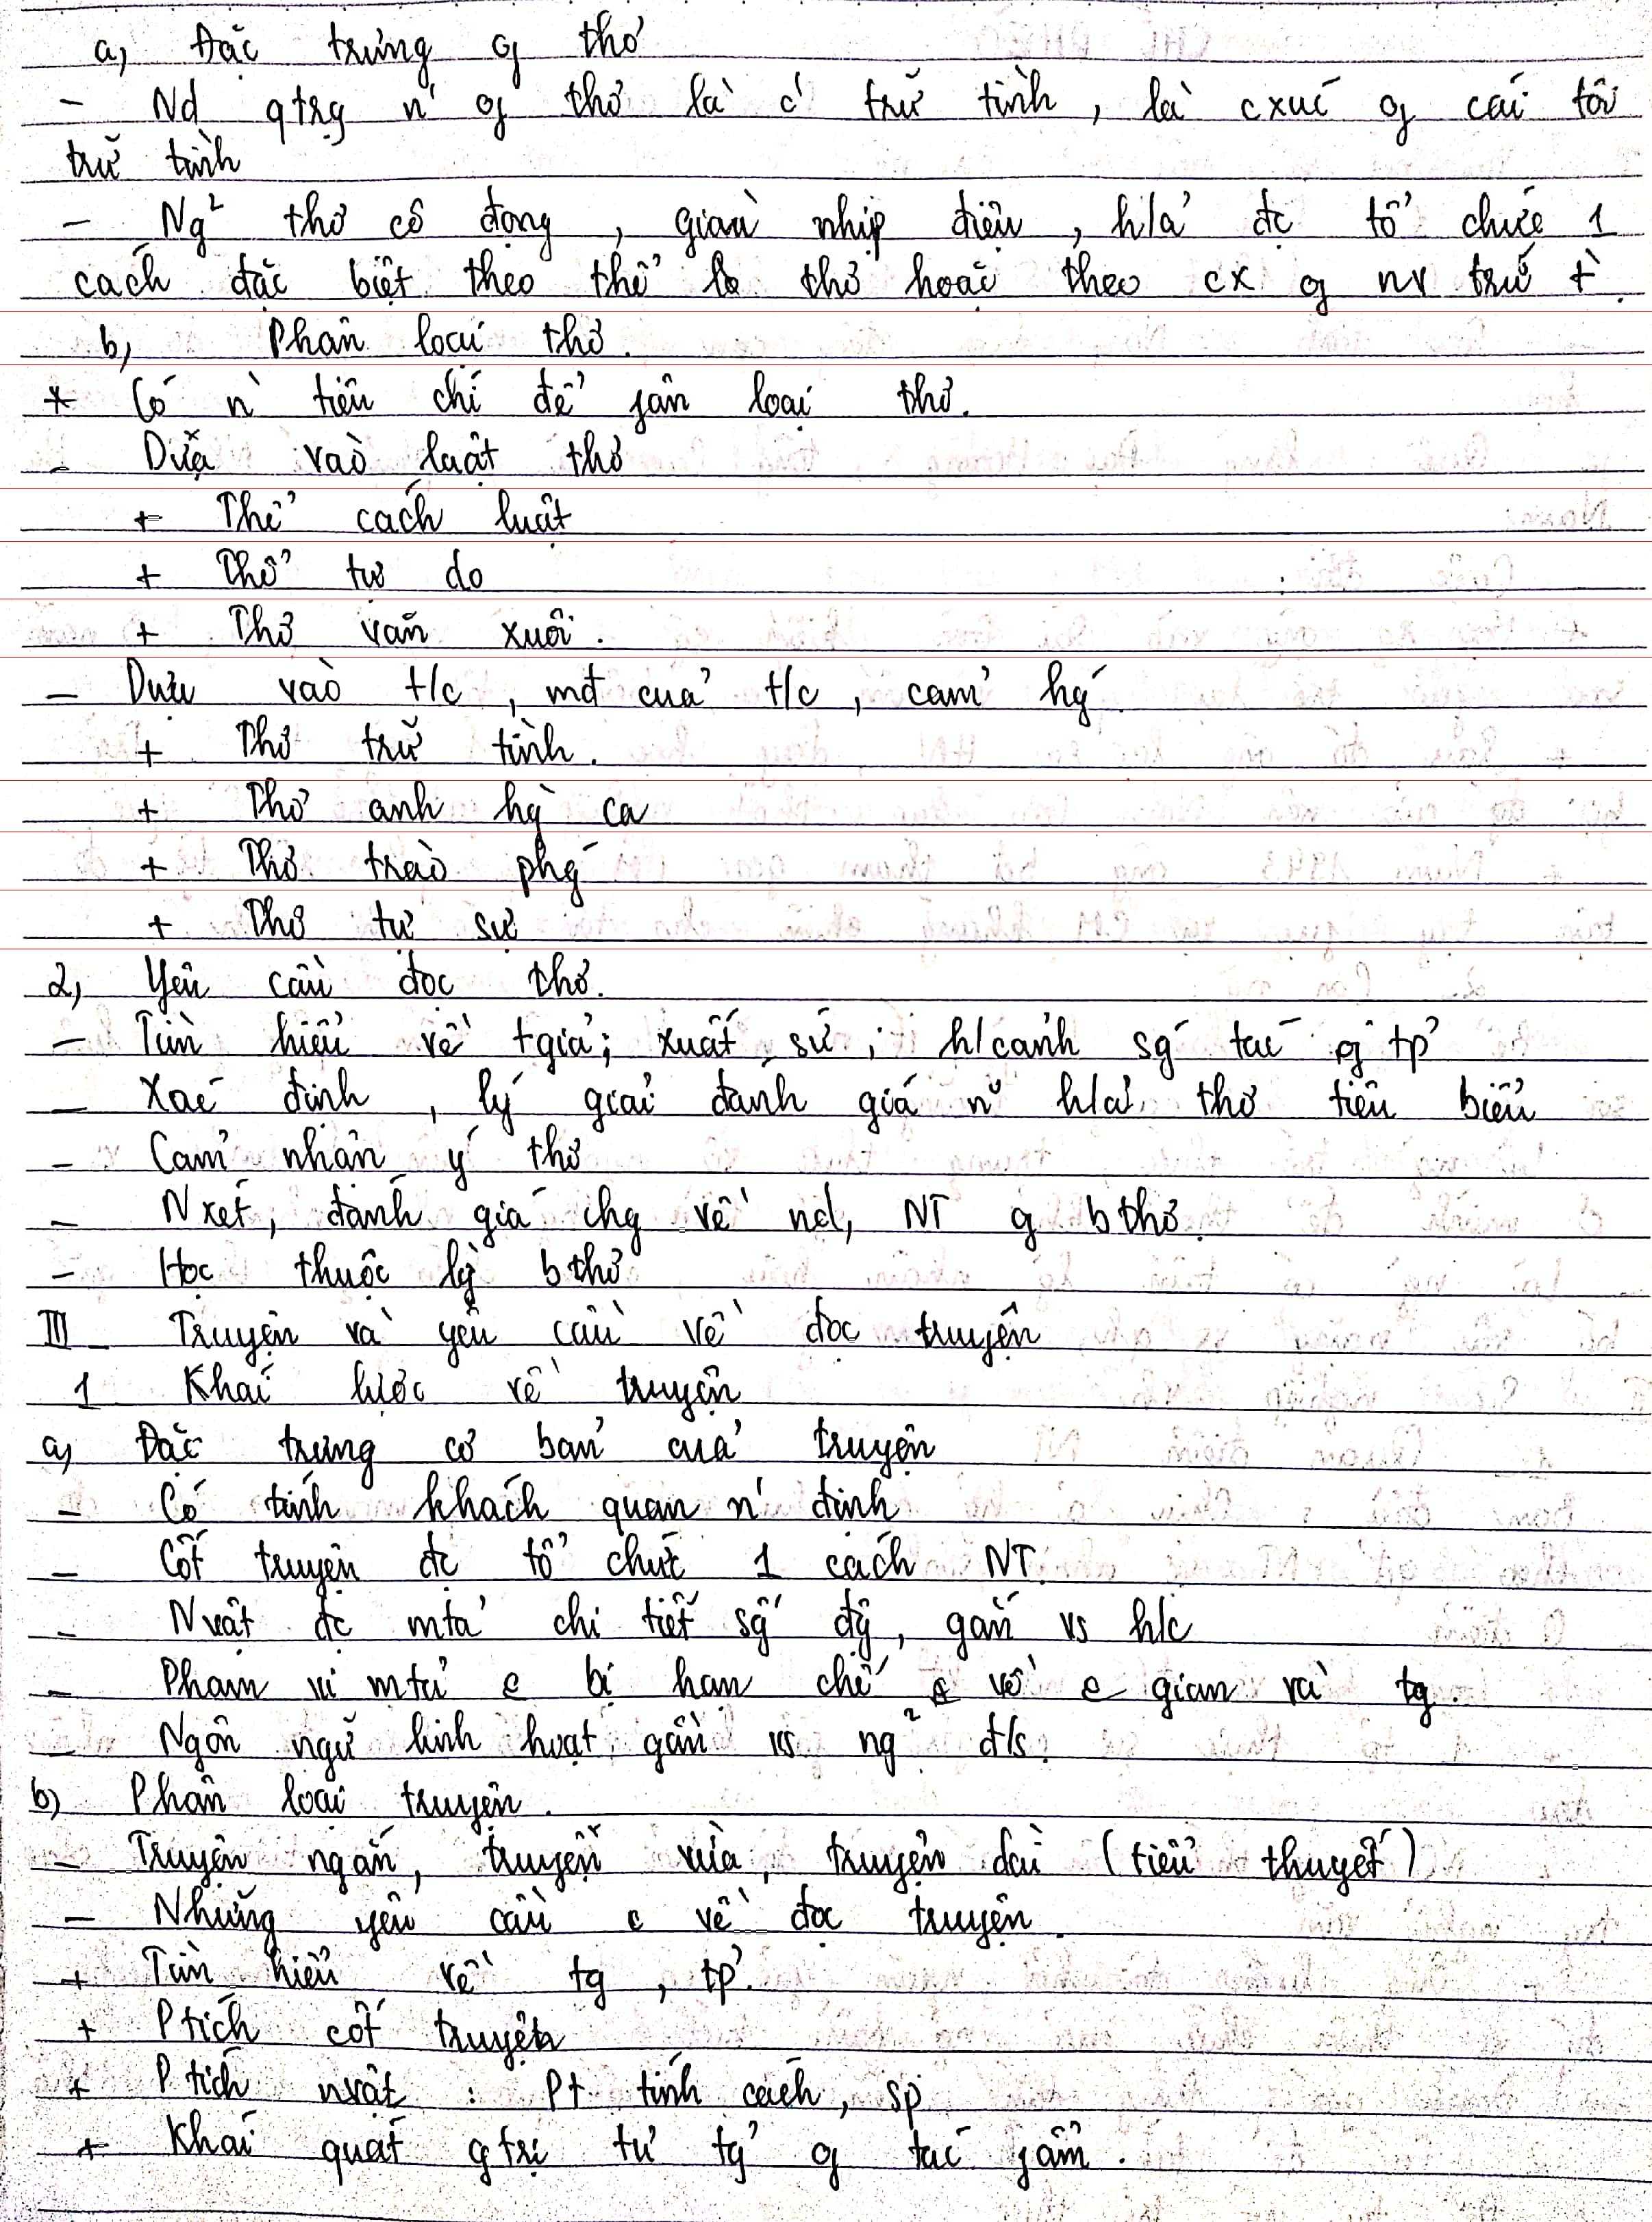 a, Đặc trưng of thơ
- Nd qtrg n' of thơ là c' trữ tình, là cxúc of cái tôi
trữ tình
- Ng² thơ cô đọng, giàu nhịp điệu, h/ả đc tổ chức 1
cách đặc biệt theo thể lo thơ hoặc theo cx of nv trữ t̀.
b, Phân loại thơ.
* Có n` tiêu chí để fân loại thơ.
- Dựa vào luật thơ
+ Thể cách luật
+ Thơ tự do
+ Thơ văn xuôi.
- Dựa vào t/c, mđ của t/c, cảm hg´
+ Thơ trữ tình.
+ Thơ anh hg` ca
+ Thơ trào phg´
+ Thơ tự sự
2, Yêu cầu đọc thơ.
- Tìm hiểu về tgiả; xuất sứ; h/cảnh sg´ tác of tp'
- Xác định, lý giải đánh giá n~ h/ả thơ tiêu biểu
- Cảm nhận ý thơ
- Nxét, đánh giá chg về nd, NT of bthơ.
- Học thuộc lg` bthơ
III - Truyện và yêu cầu về đọc truyện
1 Khái lược về truyện
a, Đặc trưng cơ bản của truyện
- Có tính khách quan n' định
- Cốt truyện đc tổ chức 1 cách NT.
- Nvật đc mtả chi tiết sg´ độg, gắn vs h/c
- Phạm vi mtả e bị hạn chế về e gian và tg.
- Ngôn ngữ linh hoạt gần vs ng² đ/s.
b) Phân loại truyện.
- Truyện ngắn, truyện vừa, truyện dài (tiểu thuyết)
- Những yêu cầu về đọc truyện.
+ Tìm hiểu về tg, tp'.
+ Ptích cốt truyện
+ Ptích nvật: Pt tính cách, sp
+ Khái quát gtrị tư tg' of tác fẩm.